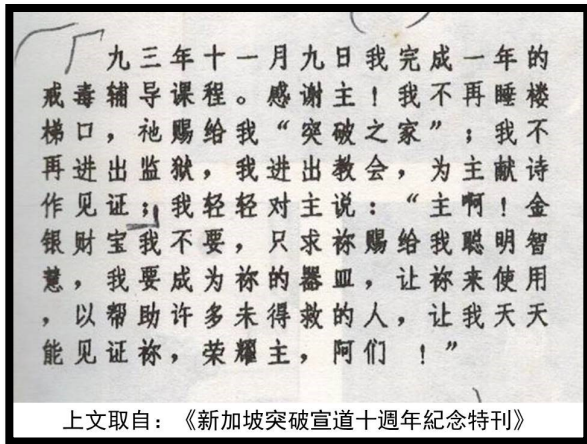 九三年十一月九日我完成一年的
戒毒辅导课程。感谢主！我不再睡楼
梯口，祂赐给我“突破之家”；我不
再进出监狱，我进出教会，为主献诗
作见证；我轻轻对主说：“主啊！金
银财宝我不要，只求祢赐给我聪明智
慧，我要成为祢的器皿，让祢来使用
，以帮助许多未得救的人，让我天天
能见证祢，荣耀主，阿们！”
上文取自：《新加坡突破宣道十週年紀念特刊》